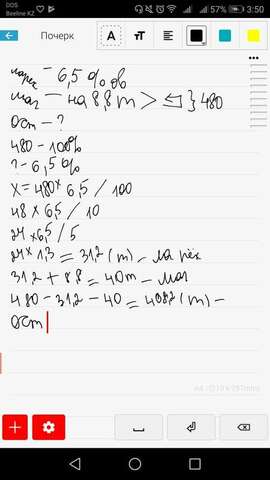 DOS
Beeline KZ
57% 3:50
Почерк
A
тТ
ларёк - 6,5% ов
маг - на 8,8 т > } 480
Ост - ?
480 - 100%
? - 6,5%
X = 480 × 6,5 / 100
48 × 6,5 / 10
24 × 6,5 / 5
24 × 1,3 = 31,2 (т) - ла рёк
31,2 + 8,8 = 40т - маг
480 - 31,2 - 40 = 408,8 (т) -
Ост